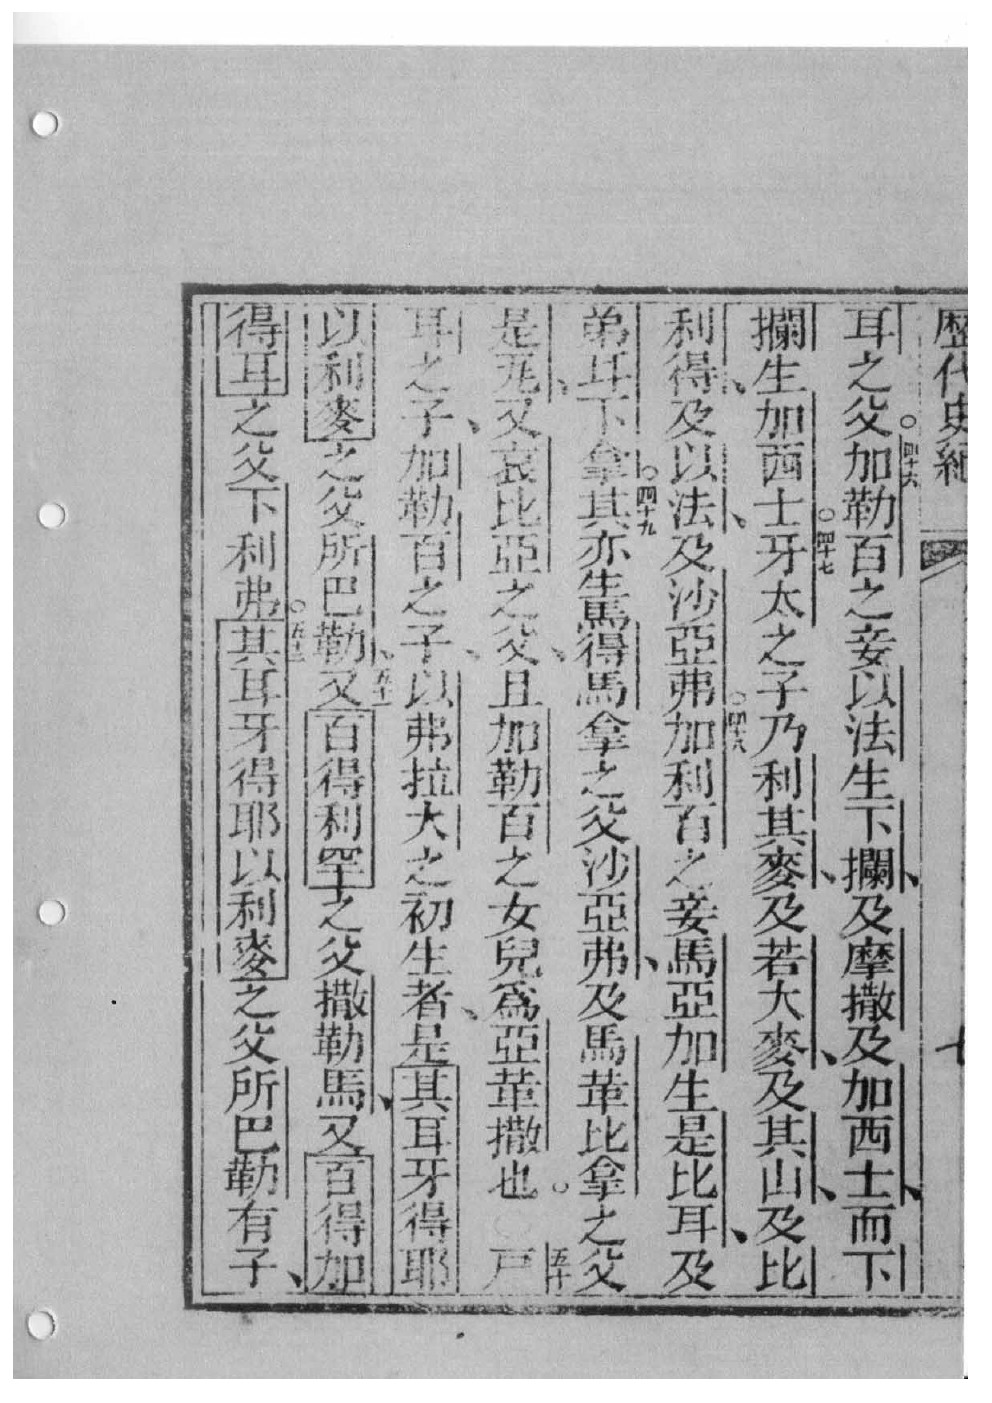 歷代史紀 七
耳之父○四十六加勒百之妾以法生下攔、及摩撒及加西士、而下
攔生加西士○四十七牙太之子乃利其麥、及若大麥、及其山、及比
利得、及以法、及沙亞弗○四十八加利百之妾馬亞加生是比耳、及
弟耳下拿○四十九其亦生馬得馬拿之父沙亞弗、及馬革比拿之父
是瓦、又哀比亞之父、且加勒百之女兒為亞革撒也。○五十戸
耳之子、加勒百之子、以弗拉大之初生者、是其耳牙得耶
以利麥之父所巴勒、五十一又百得利罕之父撒勒馬、又百得加
得耳之父下利弗○五十二其耳牙得耶以利麥之父所巴勒有子、